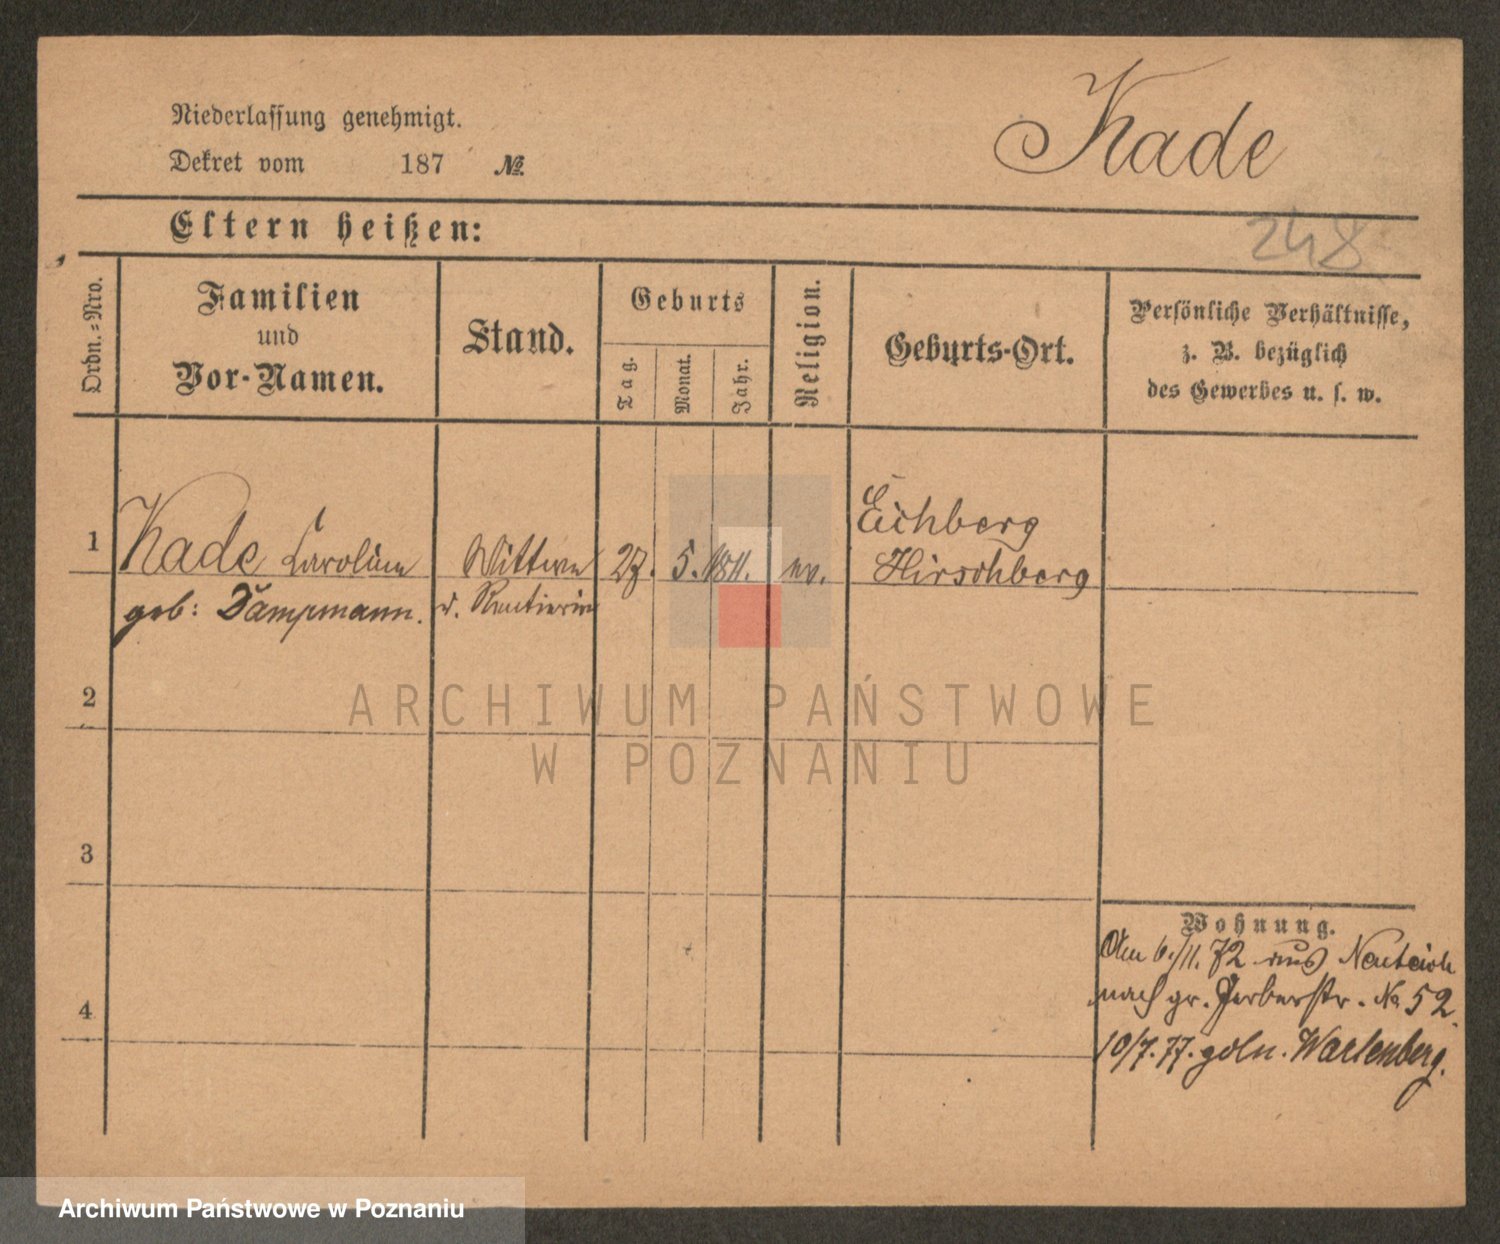 Kade
Niederlassung genehmigt.
Dekret vom 187 №
248
Eltern heißen:
Ordn.=Nro.
Familien
und
Vor-Namen.
Stand.
Geburts
Tag.
Monat.
Jahr.
Religion.
Geburts-Ort.
Persönliche Verhältnisse,
z. B. bezüglich
des Gewerbes u. s. w.
1 Kade Caroline Wittwe 27. 5. 1811. ev. Eichberg
Hirschberg
geb: Dampmann. u. Rentierin
2
3
4
Wohnung.
Am 6./11. 72 aus Neuteich
nach gr. Gerberstr. No 52.
10/7. 77. Wartenberg.
ARCHIWUM PAŃSTWOWE
W POZNANIU
Archiwum Państwowe w Poznaniu